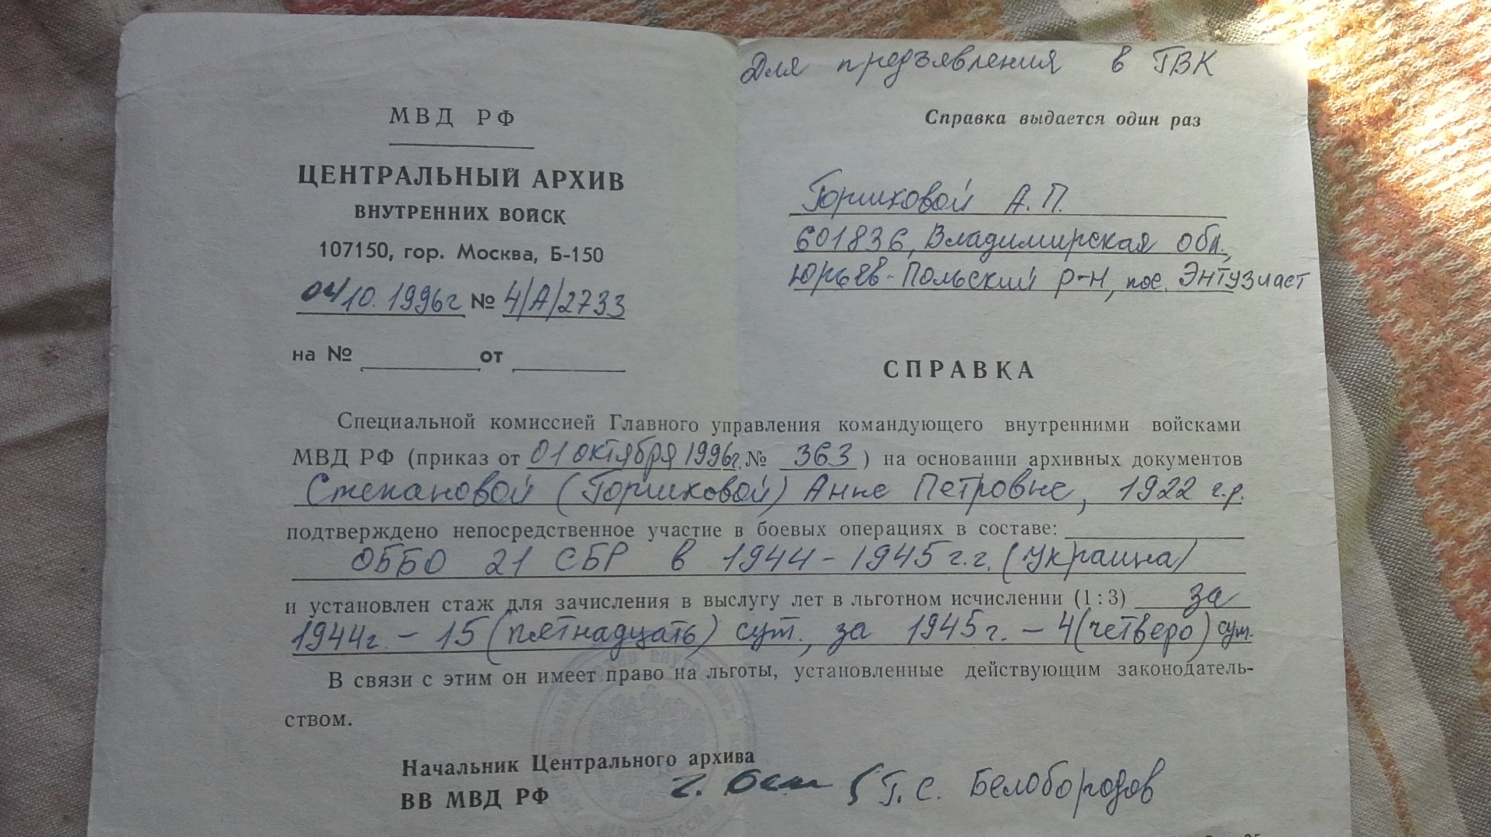 Для предъявления в ГВК
МВД РФ
Справка выдается один раз
ЦЕНТРАЛЬНЫЙ АРХИВ
ВНУТРЕННИХ ВОЙСК
107150, гор. Москва, Б-150
04/10.1996г № 4/А/2733
на № от
Горшковой А.П.
601836, Владимирская обл.,
Юрьев-Польский р-н, пос. Энтузиаст
СПРАВКА
Специальной комиссией Главного управления командующего внутренними войсками
МВД РФ (приказ от 01 октября 1996г. № 363 ) на основании архивных документов
Степановой (Горшковой) Анне Петровне, 1922 г.р.
подтверждено непосредственное участие в боевых операциях в составе:
ОББО 21 СБР в 1944-1945 г.г. (Украина)
и установлен стаж для зачисления в выслугу лет в льготном исчислении (1:3) за
1944г. - 15 (пятнадцать) сут., за 1945г. - 4 (четверо) сут.
В связи с этим он имеет право на льготы, установленные действующим законодатель-
ством.
Начальник Центрального архива
ВВ МВД РФ Г.С. Белобородов